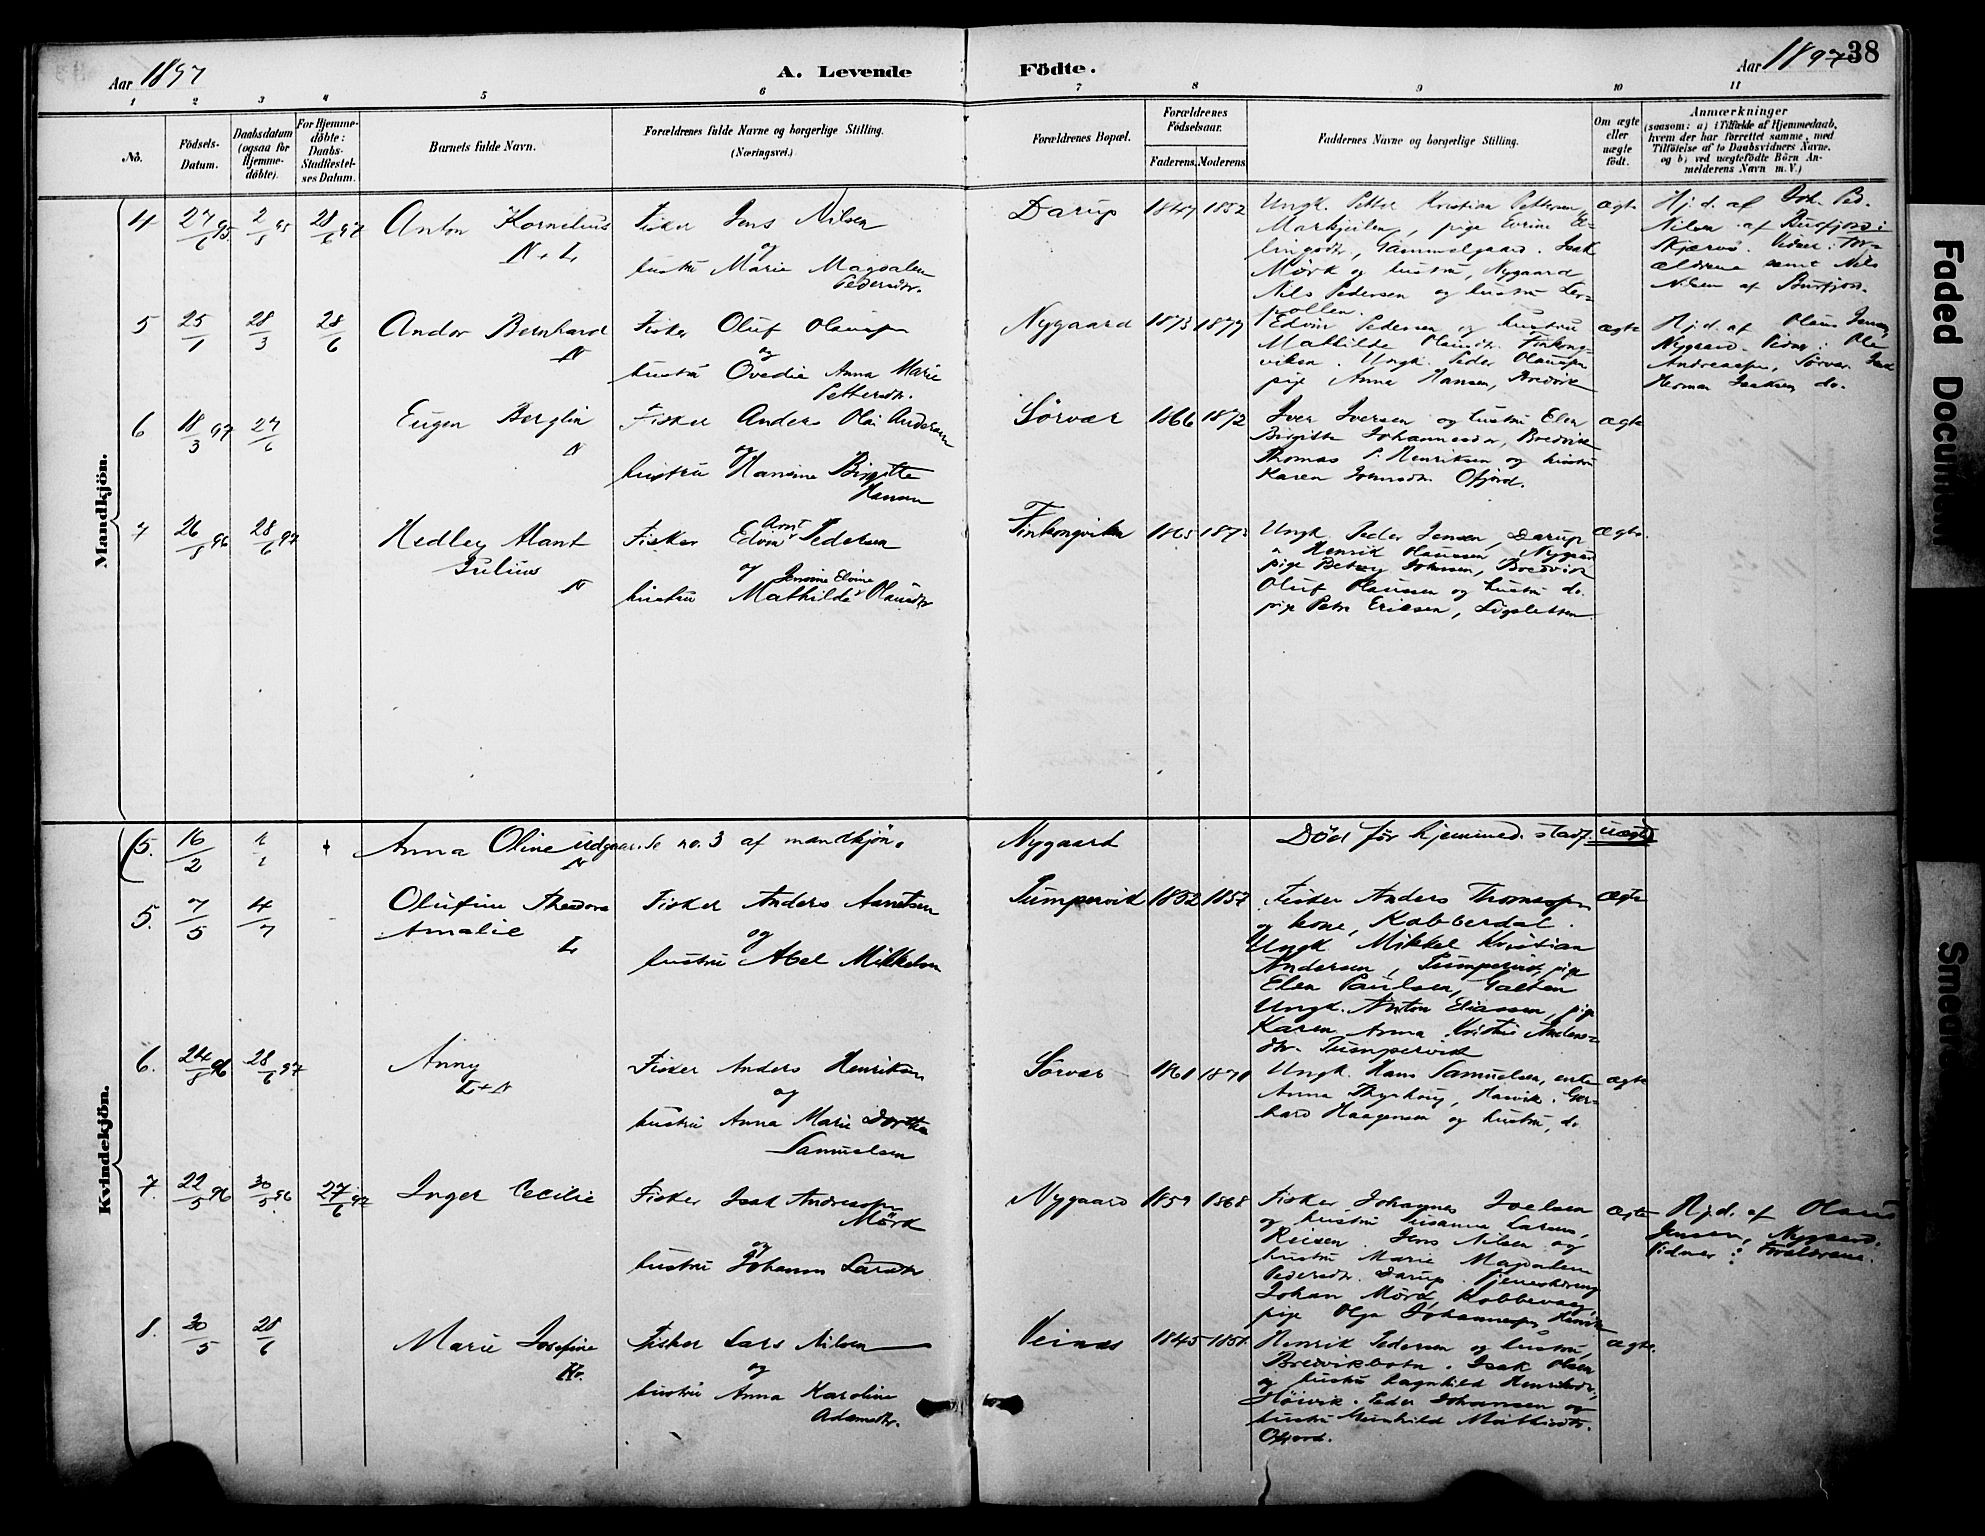 Aar 1897
A. Levende
Födte.
Aar 1897
38
1 2 3 4 5 6 7 8 9 10 11
No.
Födsels-
Datum.
Daabsdatum
(ogsaa for
Hjemme-
döbte).
For Hjemme-
döbte:
Daabs-
Stadfæstel-
ses Datum.
Barnets fulde Navn.
Forældrenes fulde Navne og borgerlige Stilling.
(Næringsvei.)
Forældrenes Bopæl.
Forældrenes
Födselsaar.
Faderens.
Moderens.
Faddernes Navne og borgerlige Stilling.
Om ægte
eller
uægte
födt.
Anmærkninger
(saasom: a) i Tilfælde af Hjemmedaab,
hvem der har forrettet samme, med
Tilföielse af to Daabsvidners Navne,
og b) ved uægtefödte Börn An-
melderens Navn m. V.)
Mandkjön.
4 27/6 95 28/6 97
Anton Kornelius
N + L
Fisker Jens Nilsen
og
hustru Marie Magdalen
Pedersdtr.
Darup 1847 1852
Ungk. Petter Kristian Pettersen,
pige Evrine
Gammelgaard. Isak
Mörk og hustru, Nygaard
Nils Pedersen og hustru Ler-
pollen.
ægte
Hj.d. af Joh. Ped.
Nilsen af Burfjord i
Skjærvö. Vidner: For-
ældrene samt Nils
Nilsen af Burfjord.
5 25/1 28/3 28/6
Andor Bernhard
N
Fisker Oluf Olausen
og
hustru Ovedie Anna Marie
Pettersdtr.
Nygaard 1873 1879
Edvin Pedersen og hustru
Mathilde Olausdtr. Finkong-
viken. Ungk. Peder Olausen
pige Anna Hansen, Bredvik
ægte
Hj.d. af Olaus Jensen,
Nygaard. Vidner: Ole
Andreassen, Sörvær, Isak
Herman Isaksen do.
6 18/3 97 27/6
Eugen Berglin
N
Fisker Anders Olai Andersen
og
hustru Hansine Birgitte
Hansen
Sörvær 1866 1872
Iver Iversen og hustru Elen
Birgitte Johannesdtr, Bredvik
Thomas P. Henriksen og hustru
Karen Ofjord.
ægte
7 26/ 96 28/6 97
Hedley Alant
Julius
N
Fisker Edvin Arnt Pedersen
og
hustru Mathilde Jensine Elvine Olausdtr
Finkongviken 1865 1873
Ungk. Peder Jensen, Darup
" Henrik Olaussen, Nygaard
pige Betsy Johnsen, Bredvik
Oluf Olaussen og hustru do.
pige Petra Eriksen, Sigsletten
ægte.
Kvindekjön.
5. 16/2
Anna Oline udgaar. Se no. 3 af mandkjön.
N
Nygaard
Död för hjemmed. stadf.
uægte
5. 7/5 4/7
Olufine Theodora
Amalie
L
Fisker Anders Arntsen
og
hustru Abel Mikkelsen
Tumpervik 1852 1857
Fisker Anders Thomassen
og kone, Kobberdal.
Ungk. Mikkel Kristian
Andersen, Tumpervik, pige
Elen Paulsen, Galten
Ungk. Anton Eliassen, pige
Karen Anna Kristine Anders-
dtr. Tumpervik
ægte
6. 24/8 96 28/6 97
Anny
L + N
Fisker Anders Henriksen
og
hustru Anna Marie Dorthea
Samuelsen
Sörvær 1861 1871
Ungk. Hans Samuelsen, enke
Anna Thyrhoug, Hasvik. Ger-
hard Haagensen og hustru, do
ægte
7. 22/5 96 30/5 96 27/6 97
Inger Cecilie
Fisker Isak Andreassen
Mörk
og
hustru Johanna Larsdtr
Nygaard 1859 1868
Fisker Johannes Joelsen
og hustru Susanna Larsen,
Reisen. Jens Nilsen og
hustru Marie Magdalene
Pedersdtr. Darup. Tjenestdreng
Johan Mörk, Kobbevaag,
pige Olga Johannesen, Hasvik
ægte
Hj.d. af Olaus
Jensen, Nygaard.
Vidner: Forældrene.
8. 30/5 28/6
Marie Josefine
Kv.
Fisker Lars Nilsen
og
hustru Anna Karoline
Adamsdtr.
Veinæs 1845 1851
Henrik Pedersen og hustru,
Bredviksbotn. Isak Olsen
og hustru Ragnhild Henriksdtr,
Höivik. Peder Johansen og
hustru Gunhild Mathisdtr.
Ofjord.
ægte.
Faded Document
Smeared